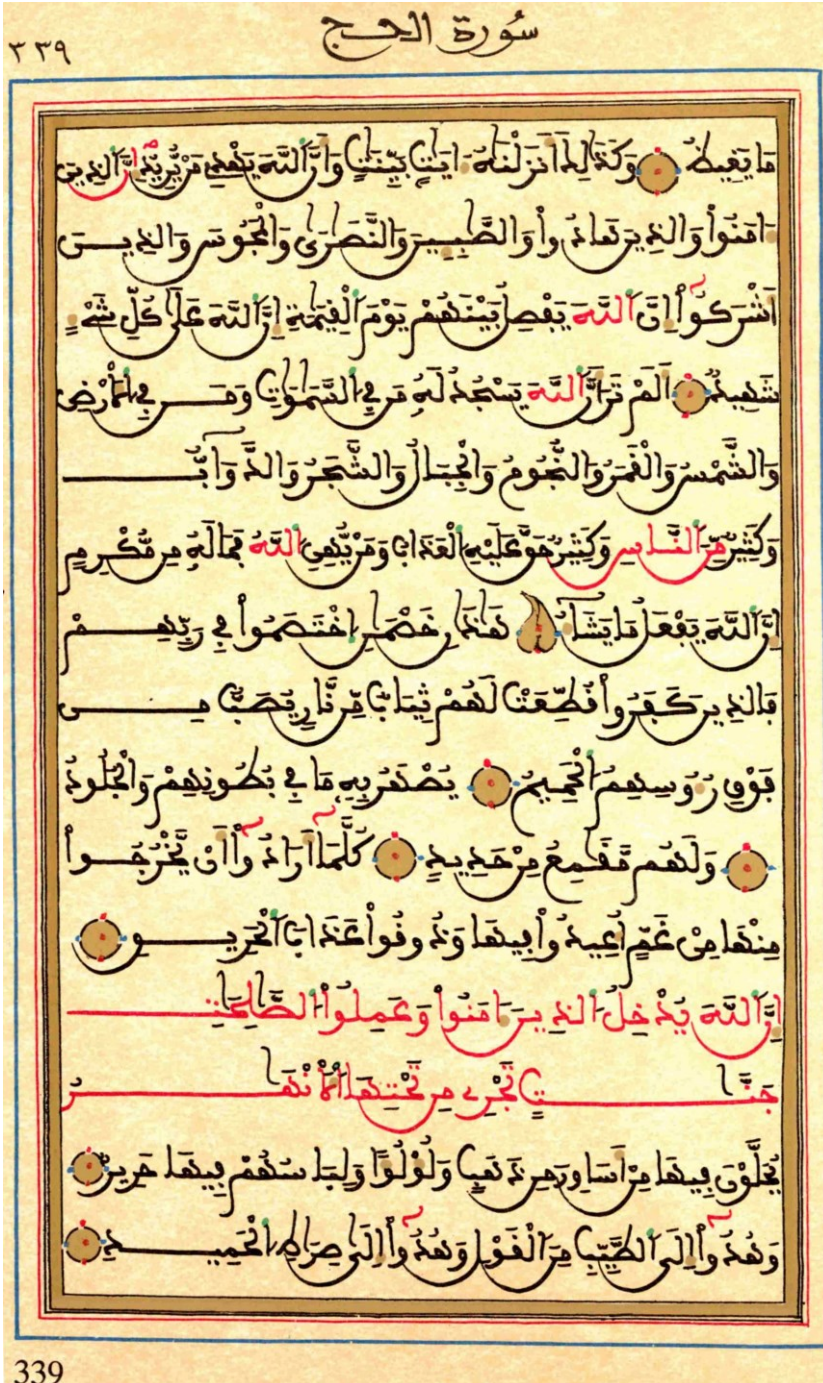 ٣٣٩
سُورَة الحج
مَا يَغِيظُ وَكَذَٰلِكَ أَنزَلْنَٰهُ ءَايَٰتِۢ بَيِّنَٰتٖ وَأَنَّ اَ۬للَّهَ يَهْدِے مَنْ يُّرِيدُ إِنَّ اَ۬لذِينَ
ءَامَنُواْ وَالذِينَ هَادُواْ وَالصَّٰبِينَ وَالنَّصَٰرَىٰ وَالْمَجُوسَ وَالذِينَ
أَشْرَكُوٓاْ إِنَّ اَ۬للَّهَ يَفْصِلُ بَيْنَهُمْ يَوْمَ اَ۬لْقِيَٰمَةِ إِنَّ اَ۬للَّهَ عَلَىٰ كُلِّ شَےْءٖ
شَهِيدٌ اَلَمْ تَرَ أَنَّ اَ۬للَّهَ يَسْجُدُ لَهُۥ مَن فِے اِ۬لسَّمَٰوَٰتِ وَمَن فِے اِ۬لَارْضِ
وَالشَّمْسُ وَالْقَمَرُ وَالنُّجُومُ وَالْجِبَالُ وَالشَّجَرُ وَالدَّوَآبُّ
وَكَثِيرٞ مِّنَ اَ۬لنَّاسِ وَكَثِيرٌ حَقَّ عَلَيْهِ اِ۬لْعَذَابُ وَمَنْ يُّهِنِ اِ۬للَّهُ فَمَا لَهُۥ مِن مُّكْرِمٍ
اِنَّ اَ۬للَّهَ يَفْعَلُ مَا يَشَآءُ هَٰذَٰنِ خَصْمَٰنِ اِ۪خْتَصَمُواْ فِے رَبِّهِمْ
فَالذِينَ كَفَرُواْ قُطِّعَتْ لَهُمْ ثِيَابٞ مِّن نّٖارٖ يُصَبُّ مِن
فَوْقِ رُءُوسِهِمُ اُ۬لْحَمِيمُ يُصْهَرُ بِهِۦ مَا فِے بُطُونِهِمْ وَالْجُلُودُ
وَلَهُم مَّقَٰمِعُ مِنْ حَدِيدٖ كُلَّمَآ أَرَادُوٓاْ أَنْ يَّخْرُجُواْ
مِنْهَا مِنْ غَمٍّ ا۟عِيدُواْ فِيهَا وَذُوقُواْ عَذَابَ اَ۬لْحَرِيقِ
إِنَّ اَ۬للَّهَ يُدْخِلُ اُ۬لذِينَ ءَامَنُواْ وَعَمِلُواْ اُ۬لصَّٰلِحَٰتِ
جَنَّٰتٖ تَجْرِے مِن تَحْتِهَا اَ۬لَانْهَٰرُ
يُحَلَّوْنَ فِيهَا مِنَ اَسَاوِرَ مِن ذَهَبٖ وَلُؤْلُؤاٗ وَلِبَاسُهُمْ فِيهَا حَرِيرٞ
وَهُدُوٓاْ إِلَى اَ۬لطَّيِّبِ مِنَ اَ۬لْقَوْلِ وَهُدُوٓاْ إِلَىٰ صِرَٰطِ اِ۬لْحَمِيدِ
339